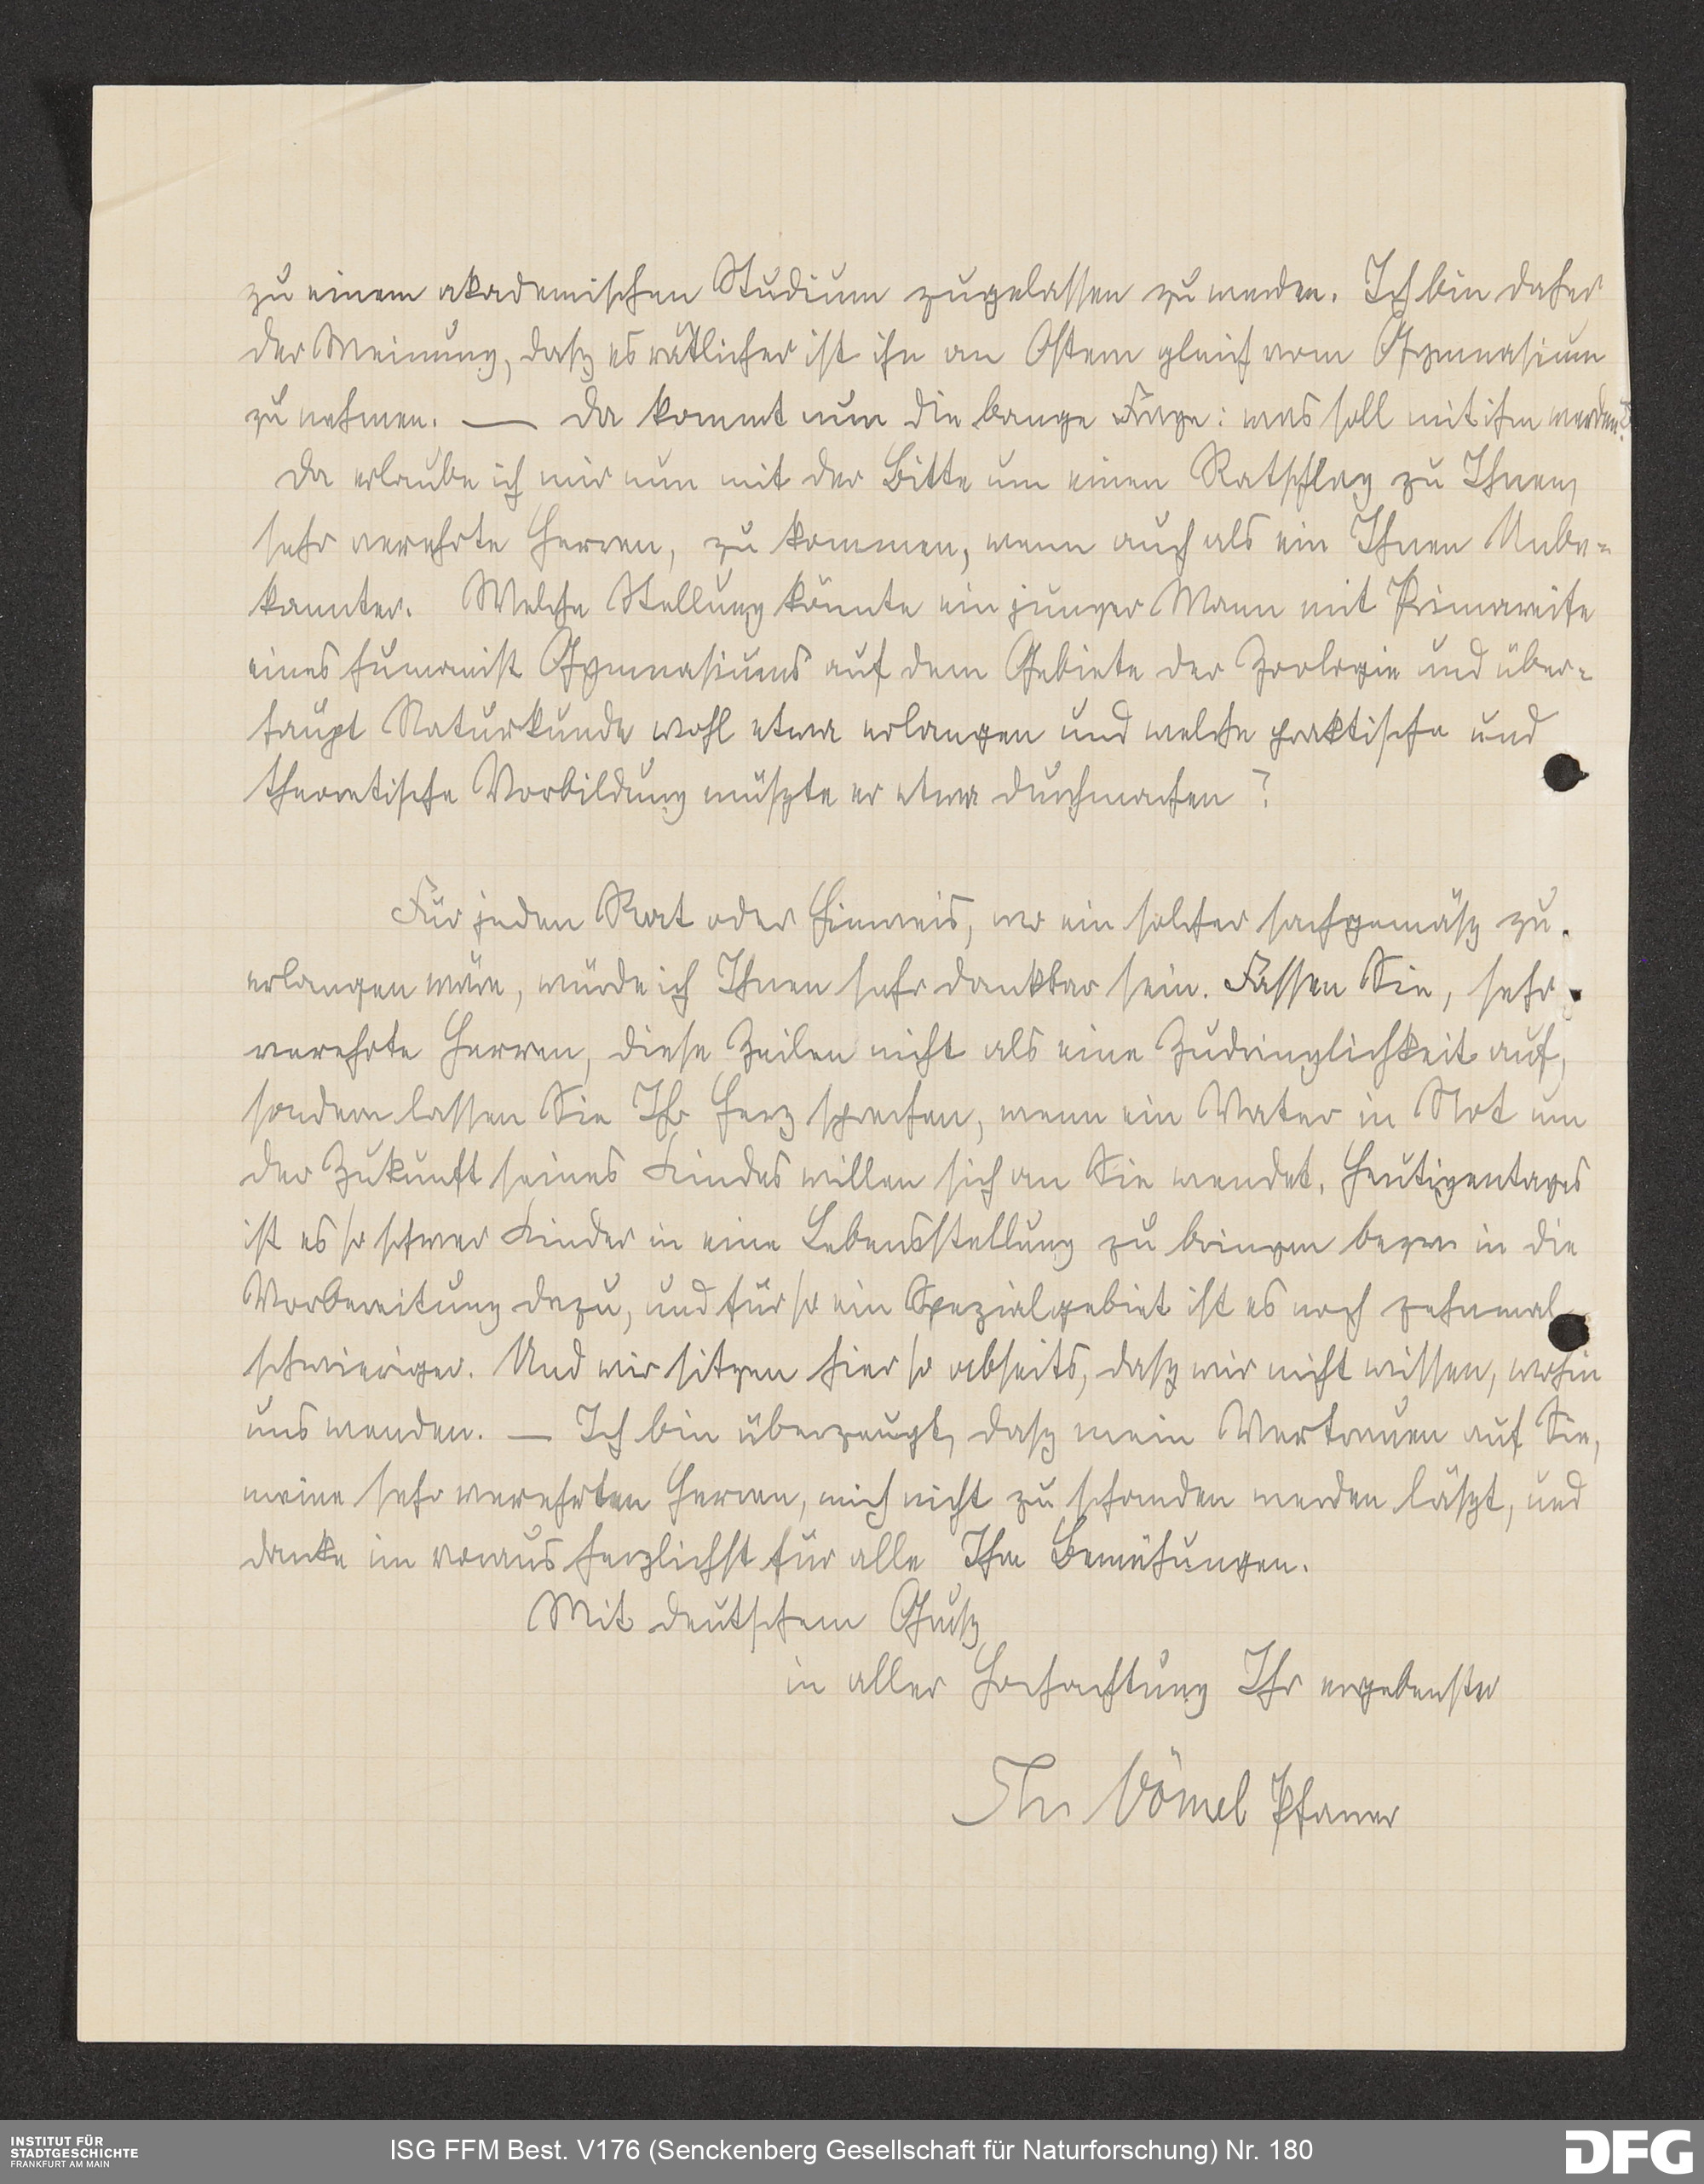 zu einem akademischen Studium zugelassen zu werden. Ich bin daher
der Meinung, dasz es rätlicher ist ihn an Ostern gleich vom Gymnasium
zu nehmen. — Da kommt nun die bange Frage: was soll mit ihm werden?
Da erlaube ich mir nun mit der Bitte um einen Ratschlag zu Ihnen,
sehr verehrte Herren, zu kommen, wenn auch als ein Ihnen Unbe-
kannter. Welche Stellung könnte ein junger Mann mit Primareife
eines humanist Gymnasiums auf dem Gebiete der Zoologie und über-
haupt Naturkunde wohl etwa erlangen und welche praktische und
theoretische Vorbildung müszte er etwa durchmachen?
Für jeden Rat oder Hinweis, wo ein solcher sachgemäsz zu
erlangen wäre, würde ich Ihnen sehr dankbar sein. Fassen Sie, sehr
verehrte Herren, diese Zeilen nicht als eine Zudringlichkeit auf,
sondern lassen Sie Ihr Herz sprechen, wenn ein Vater in Not um
der Zukunft seines Kindes willen sich an Sie wendet. Heutigentages
ist es so schwer Kinder in eine Lebensstellung zu bringen bezw in die
Vorbereitung dazu, und für so ein Spezialgebiet ist es noch zehnmal
schwieriger. Und wir sitzen hier so abseits, dasz wir nicht wissen, wohin
uns wenden. — Ich bin überzeugt, dasz mein Vertrauen auf Sie,
meine sehr verehrten Herren, mich nicht zu schanden werden läszt, und
danke im voraus herzlichst für alle Ihre Bemühungen.
Mit deutschem Grusz
in aller Hochachtung Ihr ergebenster
Th Vömel Pfarrer
INSTITUT FÜR
STADTGESCHICHTE
FRANKFURT AM MAIN
ISG FFM Best. V176 (Senckenberg Gesellschaft für Naturforschung) Nr. 180
DFG